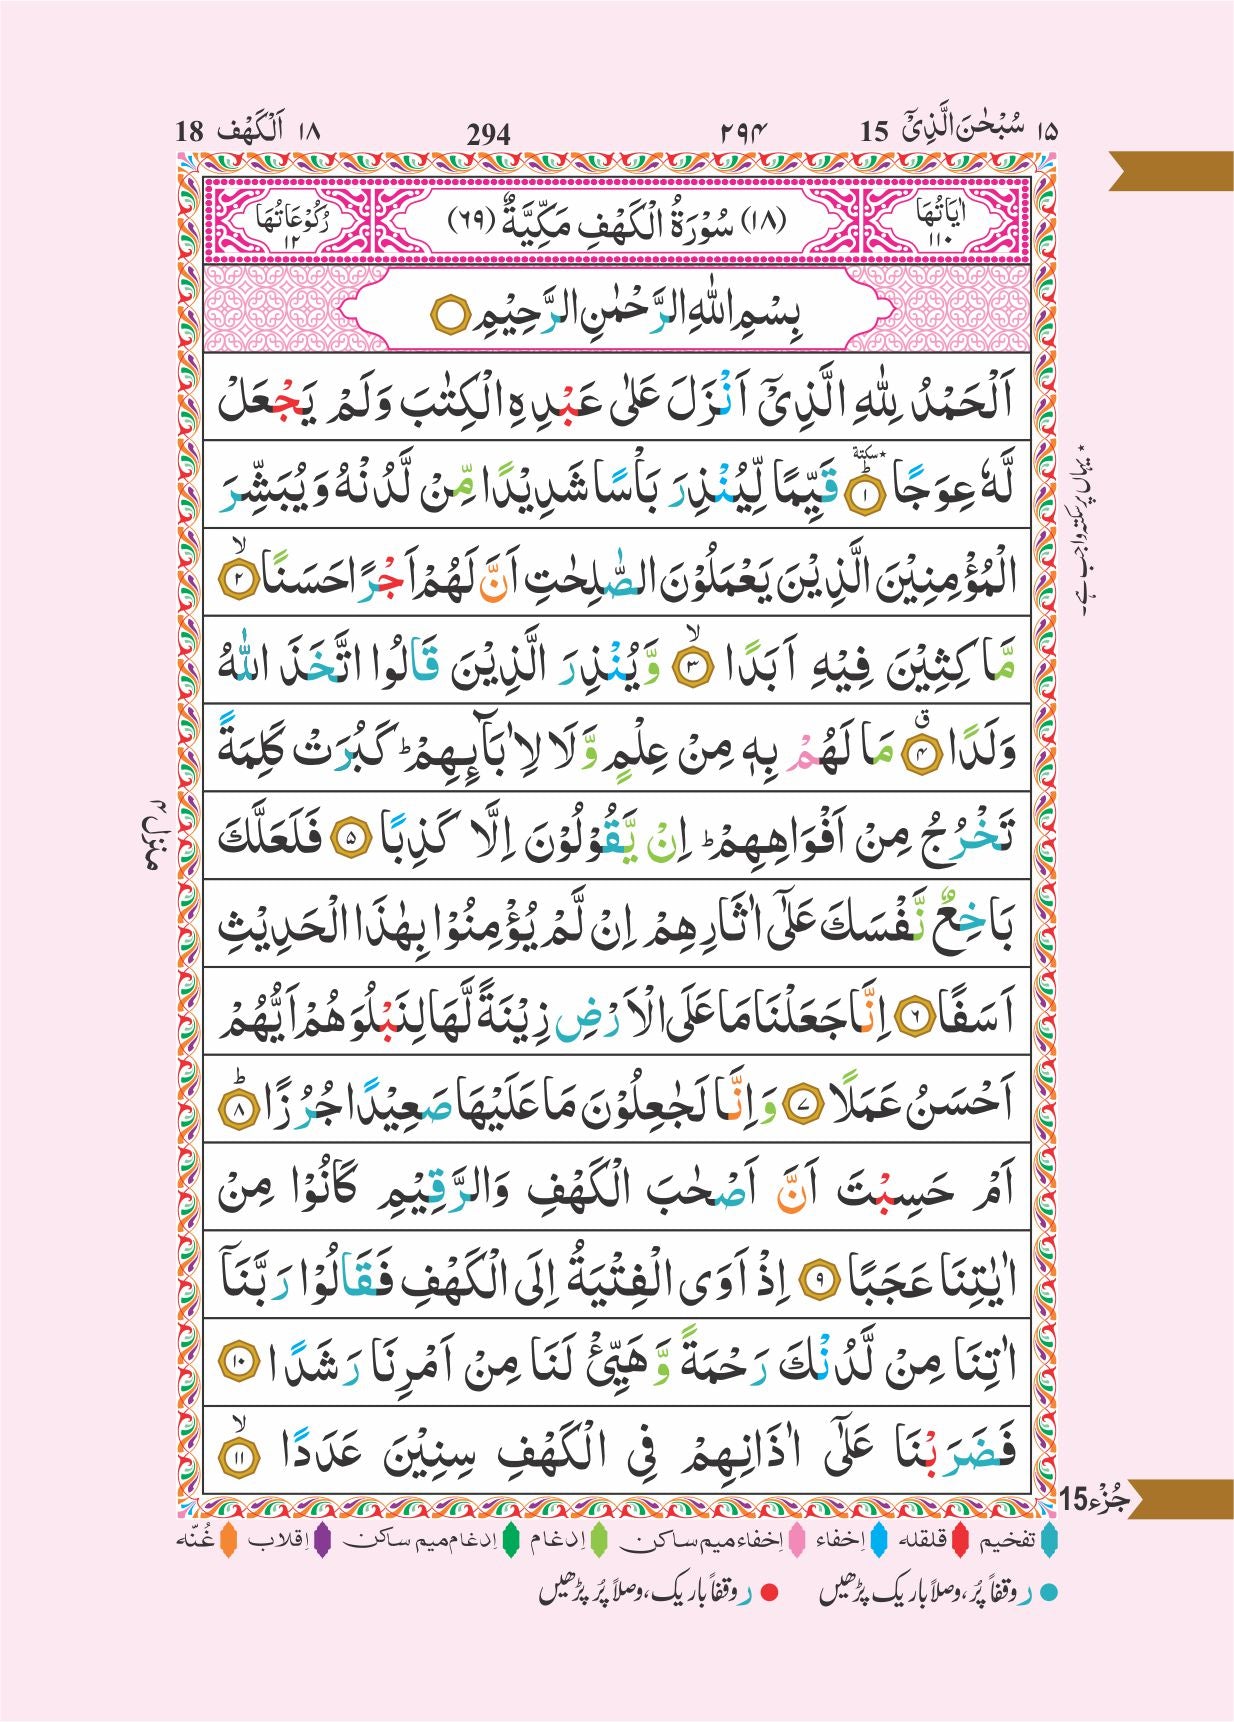 ١٥ سُبْحٰنَ الَّذِیْۤ 15 ۲۹۴ 294 ١٨ اَلْكَهْف 18
اٰیَاتُهَا ١١٠ (١٨) سُوْرَةُ الْكَهْفِ مَكِّیَّةٌ (٦٩) رُكُوْعَاتُهَا ١٢
بِسْمِ اللّٰهِ الرَّحْمٰنِ الرَّحِیْمِ
اَلْحَمْدُ لِلّٰهِ الَّذِیْۤ اَنْزَلَ عَلٰی عَبْدِهِ الْكِتٰبَ وَلَمْ یَجْعَلْ
لَّهٗ عِوَجًا ١ ٭سكتة قَیِّمًا لِّیُنْذِرَ بَاْسًا شَدِیْدًا مِّنْ لَّدُنْهُ وَیُبَشِّرَ
الْمُؤْمِنِیْنَ الَّذِیْنَ یَعْمَلُوْنَ الصّٰلِحٰتِ اَنَّ لَهُمْ اَجْرًا حَسَنًا ۙ ۲
مَّا كِثِیْنَ فِیْهِ اَبَدًا ۙ ۳ وَّیُنْذِرَ الَّذِیْنَ قَالُوا اتَّخَذَ اللّٰهُ
وَلَدًا ق ۴ مَا لَهُمْ بِهٖ مِنْ عِلْمٍ وَّلَا لِاٰبَآىِٕهِمْ ؕ كَبُرَتْ كَلِمَةً
تَخْرُجُ مِنْ اَفْوَاهِهِمْ ؕ اِنْ یَّقُوْلُوْنَ اِلَّا كَذِبًا ۵ فَلَعَلَّكَ
بَاخِعٌ نَّفْسَكَ عَلٰۤی اٰثَارِهِمْ اِنْ لَّمْ یُؤْمِنُوْا بِهٰذَا الْحَدِیْثِ
اَسَفًا ۶ اِنَّا جَعَلْنَا مَا عَلَی الْاَرْضِ زِیْنَةً لَّهَا لِنَبْلُوَهُمْ اَیُّهُمْ
اَحْسَنُ عَمَلًا ۷ وَاِنَّا لَجٰعِلُوْنَ مَا عَلَیْهَا صَعِیْدًا جُرُزًا ؕ ۸
اَمْ حَسِبْتَ اَنَّ اَصْحٰبَ الْكَهْفِ وَالرَّقِیْمِ كَانُوْا مِنْ
اٰیٰتِنَا عَجَبًا ۹ اِذْ اَوَی الْفِتْیَةُ اِلَی الْكَهْفِ فَقَالُوْا رَبَّنَاۤ
اٰتِنَا مِنْ لَّدُنْكَ رَحْمَةً وَّهَیِّئْ لَنَا مِنْ اَمْرِنَا رَشَدًا ١٠
فَضَرَبْنَا عَلٰۤی اٰذَانِهِمْ فِی الْكَهْفِ سِنِیْنَ عَدَدًا ۙ ١١
٭ یہاں پر سکتہ واجب ہے۔
منزل ۴
جُزْء 15
تفخیم قلقلہ اِخفاء اِخفاء میم ساکن اِدغام اِدغام میم ساکن اِقلاب غُنّہ
ر وقفاً پُر، وصلاً باریک پڑھیں ر وقفاً باریک، وصلاً پُر پڑھیں